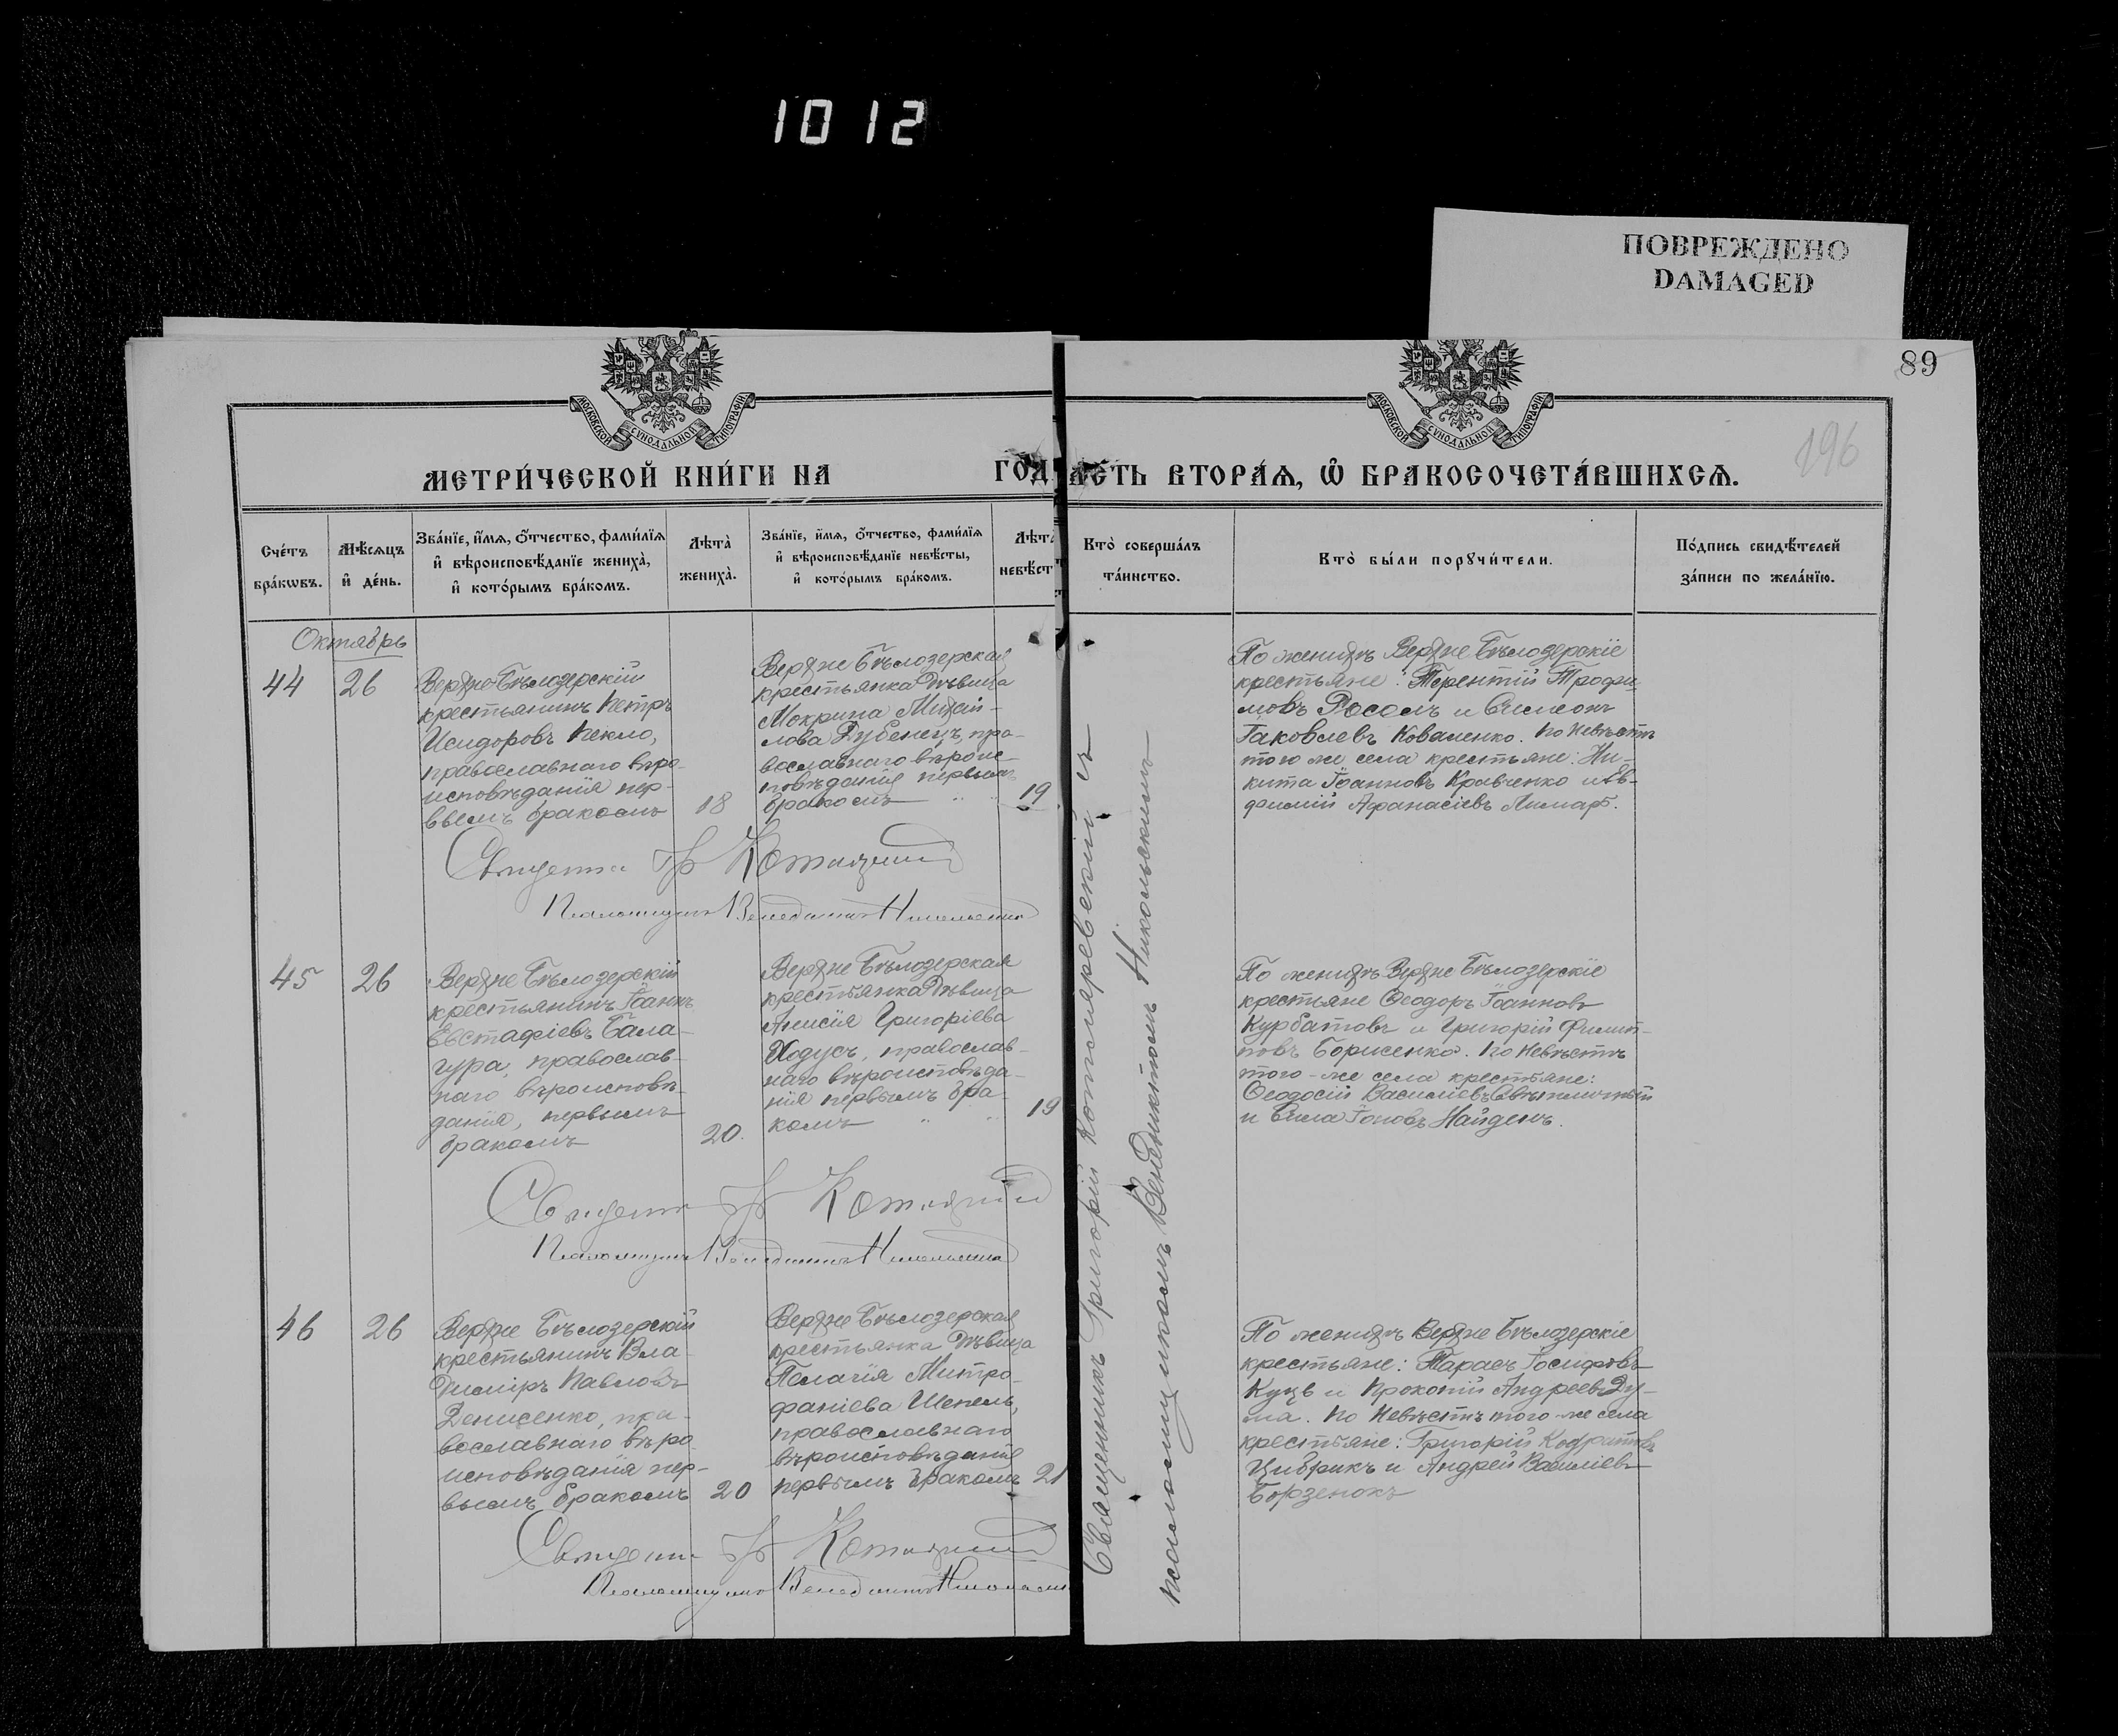 1012
ПОВРЕЖДЕНО
DAMAGED
89
196
МОСКОВСКОЙ СѴНОДАЛЬНОЙ ТИПОГРАФІИ
МОСКОВСКОЙ СѴНОДАЛЬНОЙ ТИПОГРАФІИ
МЕТРИ́ЧЕСКОЙ КНИ́ГИ НА ГОД
АСТЬ ВТОРА́Я, Ѡ БРАКОСОЧЕТА́ВШИХСЯ.
Сче́тъ
бра́кѡвъ.
Мѣ́сяцъ
и҆ де́нь.
Зва́нїе, и҆́мя, ѻ҆́тчество, фами́лїя
и҆ вѣроисповѣ́данїе жениха̀,
и҆ кото́рымъ бра́комъ.
Лѣта̀
жениха̀.
Зва́нїе, и҆́мя, ѻ҆́тчество, фами́лїя
и҆ вѣроисповѣ́данїе невѣ́сты,
и҆ кото́рымъ бра́комъ.
Лѣта̀
невѣ́ст
Кто̀ соверша́лъ
та́инство.
Кто̀ бы́ли порꙋчи́тели.
По́дпись свидѣ́телей
за́писи по жела́нїю.
Октябрь
44
26
Верхне Бѣлозерскій
крестьянинъ Петръ
Исидоровъ Пекло,
православнаго вѣро-
исповѣданія пер-
вымъ бракомъ
18
Верхне Бѣлозерская
крестьянка дѣвица
Мокрина Михай-
лова Дубенецъ, пра-
вославнаго вѣроис-
повѣданія первымъ
бракомъ
19
По женихѣ Верхне Бѣлозерскіе
крестьяне: Терентій Трофи-
мовъ Росолъ и Симеонъ
Іаковлевъ Коваленко. По невѣстѣ
того же села крестьяне: Ни-
кита Іоанновъ Кравченко и Ев-
докимій Афанасіевъ Лимарь.
Псаломщикъ Венедиктъ Никольскій
45
26
Верхне Бѣлозерскій
крестьянинъ Іоаннъ
Евстафіевъ Бала-
гура, православ-
наго вѣроисповѣ-
данія, первымъ
бракомъ
20.
Верхне Бѣлозерская
крестьянка дѣвица
Анисія Григоріева
Ходусъ, православ-
наго вѣроисповѣда-
нія первымъ бра-
комъ
19
По женихѣ Верхне Бѣлозерскіе
крестьяне Ѳеодоръ Іоанновъ
Курбатовъ и Григорій Филип-
повъ Борисенко. По невѣстѣ
того-же села крестьяне:
Ѳеодосій Василіевъ
и Сила Іоновъ Найденъ.
Псаломщикъ Венедиктъ Никольскій
46
26
Верхне Бѣлозерскій
крестьянинъ Вла-
диміръ Павловъ
Денисенко, пра-
вославнаго вѣро-
исповѣданія пер-
вымъ бракомъ
20
Верхне Бѣлозерская
крестьянка дѣвица
Пелагія Митро-
фаніева Шепель,
православнаго
вѣроисповѣданія
первымъ бракомъ
21
По женихѣ Верхне Бѣлозерскіе
крестьяне: Тарасъ Іосифовъ
Куцъ и Прокопій Андреевъ Ду-
ма. По невѣстѣ того-же села
крестьяне: Григорій Кодратовъ
Цибрикъ и Андрей Василіевъ
Борзенокъ
Псаломщикъ Венедиктъ Никольскій
Священникъ Григорій Котляревскій съ
псаломщикомъ Венедиктомъ Никольскимъ